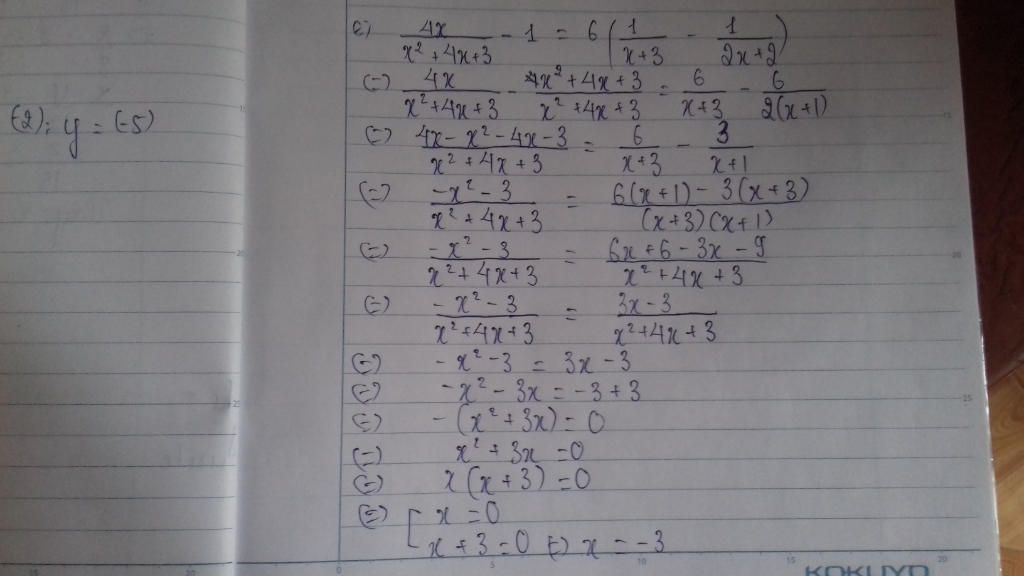 (-2); y = (-5)
e) 4x/(x² + 4x + 3) - 1 = 6 (1/(x+3) - 1/(2x+2))
(=) 4x/(x² + 4x + 3) - (x² + 4x + 3)/(x² + 4x + 3) = 6/(x+3) - 6/(2(x+1))
(=) (4x - x² - 4x - 3)/(x² + 4x + 3) = 6/(x+3) - 3/(x+1)
(=) (-x² - 3)/(x² + 4x + 3) = (6(x+1) - 3(x+3))/((x+3)(x+1))
(=) (-x² - 3)/(x² + 4x + 3) = (6x + 6 - 3x - 9)/(x² + 4x + 3)
(=) (-x² - 3)/(x² + 4x + 3) = (3x - 3)/(x² + 4x + 3)
(=) -x² - 3 = 3x - 3
(=) -x² - 3x = -3 + 3
(=) -(x² + 3x) = 0
(=) x² + 3x = 0
(=) x(x + 3) = 0
(=) [ x = 0
x + 3 = 0 (=) x = -3
0 5 10 15 20
KOKUYO